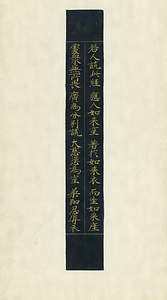 若人說此經 應入如來室 著於如來衣 而坐如來座
處衆無所畏 廣為分別說 大慈悲為室 柔和忍辱衣